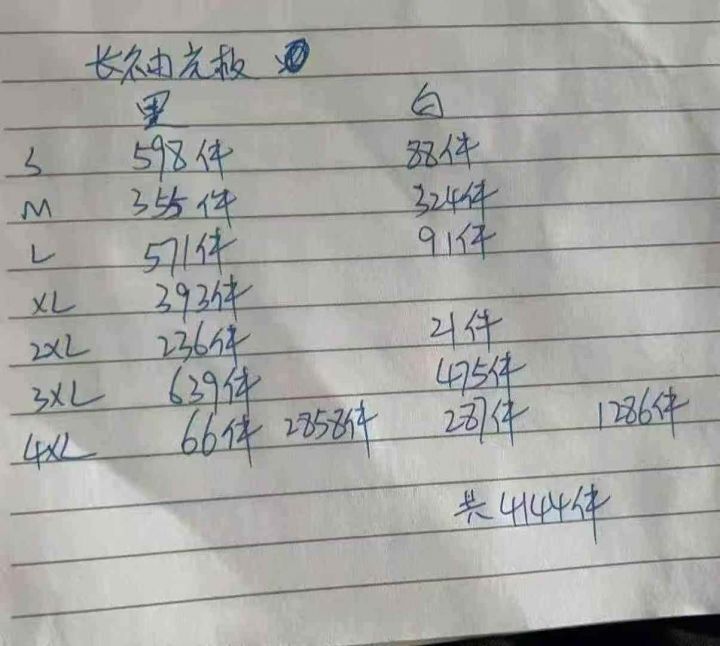 长袖光板
黑 白
S 598件 88件
M 355件 324件
L 571件 91件
XL 393件
2XL 236件 21件
3XL 639件 475件
4XL 66件 2858件 287件 1286件
共4144件